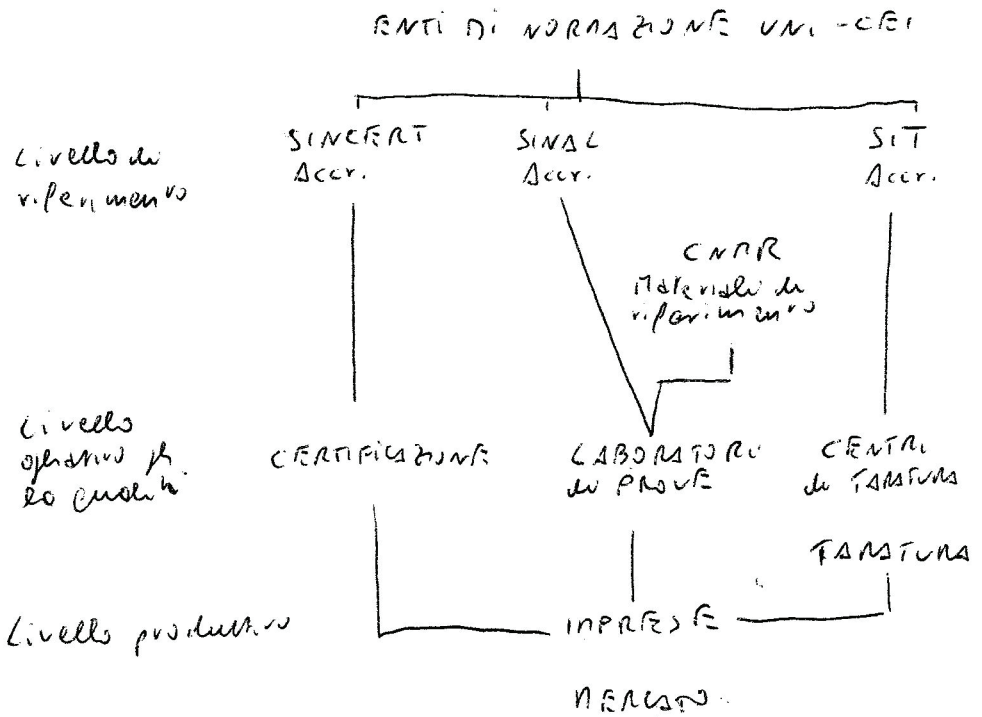 ENTI DI NORMAZIONE UNI-CEI
Livello di
riferimento
SINCERT
Accr.
SINAL
Accr.
SIT
Accr.
CNMR
Materiali di
riferimento
Livello
operativo per
la qualità
CERTIFICAZIONE
LABORATORI
di PROVE
CENTRI
di TARATURA
TARATURA
Livello produttivo
IMPRESE
MERCATO